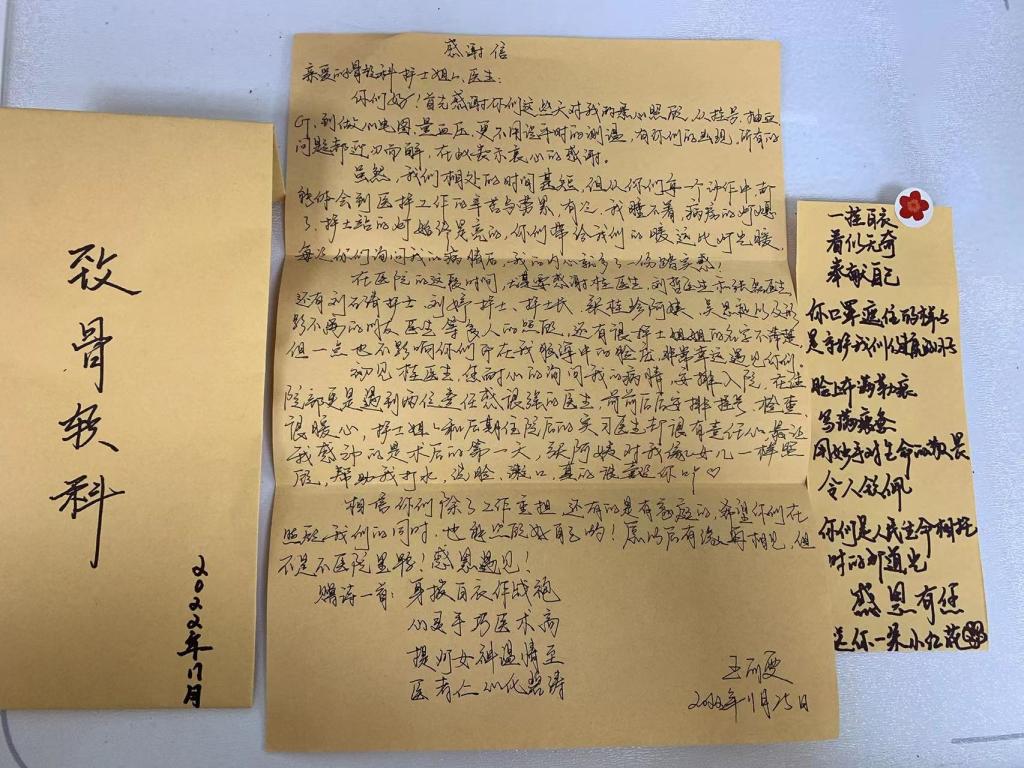 致骨软科
2022年11月
感谢信
亲爱的骨软科护士姐姐、医生：
你们好！首先感谢你们这些天对我的悉心照顾，从挂号、抽血
CT，到做心电图、量血压，更不用说平时的测温，有你们的出现，所有的
问题都迎刃而解，在此表示衷心的感谢。
虽然，我们相处的时间甚短，但从你们每一个动作中都
能体会到医护工作的辛苦与劳累，有次，我睡不着，病房的灯熄
了，护士站的灯始终是亮的，你们带给我们的暖远比灯光暖，
每次你们询问我的病情后，我的内心就多了一份踏实感！
在医院的这段时间，想要感谢程医生、刘医生
还有刘护士、刘婷护士、护士长、梁桂珍阿姨、吴以及形
影不离的朋友医生等多人的照顾，还有很护士姐姐的名字不清楚，
但一点也不影响你们所在我脑海中的脸庞，非常幸运遇见你们。
初见程医生，您耐心的询问我的病情，安排入院，在住
院部更是遇到两位责任感很强的医生，前前后后安排挂号、检查
很暖心，护士姐姐和后期住院后的实习医生都很有责任心，最让
我感动的是术后的第一天，梁阿姨对我像女儿一样照
顾，帮助我打水，洗脸、漱口，真的很喜欢你呀♡
相信你们除了工作重担，还有的是有家庭的，希望你们在
照顾我们的同时，也能照顾好自己的！愿以后有缘再相见，但
不是在医院里辣！感恩遇见！
赠诗一首：身披白衣作战袍
心灵手巧医术高
提灯女神温情至
医者仁心化碧涛
王丽雯
2022年11月25日
一袭白衣
看似无奇
奉献自己
你口罩遮住的样子
是守护我们健康的
脸上布满勒痕
写满疲惫
用妙手对生命的
令人钦佩
你们是人民生命相托
时的那道光
感恩有您
送你一朵小红花